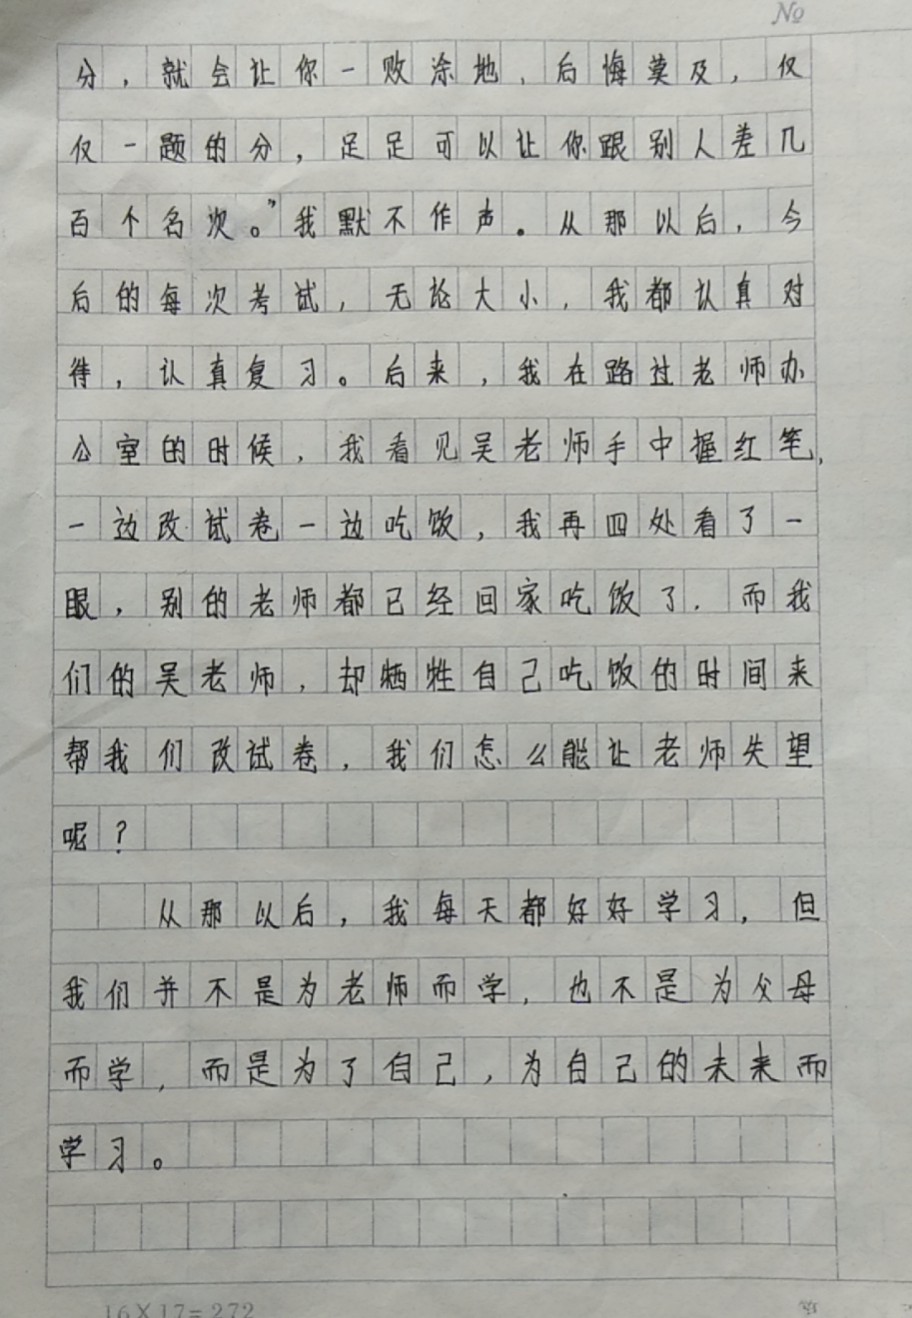 №
分，就会让你一败涂地，后悔莫及，仅
仅一题的分，足足可以让你跟别人差几
百个名次。”我默不作声。从那以后，今
后的每次考试，无论大小，我都认真对
待，认真复习。后来，我在路过老师办
公室的时候，我看见吴老师手中握红笔，
一边改试卷一边吃饭，我再四处看了一
眼，别的老师都已经回家吃饭了．而我
们的吴老师，却牺牲自己吃饭的时间来
帮我们改试卷，我们怎么能让老师失望
呢？
从那以后，我每天都好好学习，但
我们并不是为老师而学，也不是为父母
而学，而是为了自己，为自己的未来而
学习。
16×17=272
第